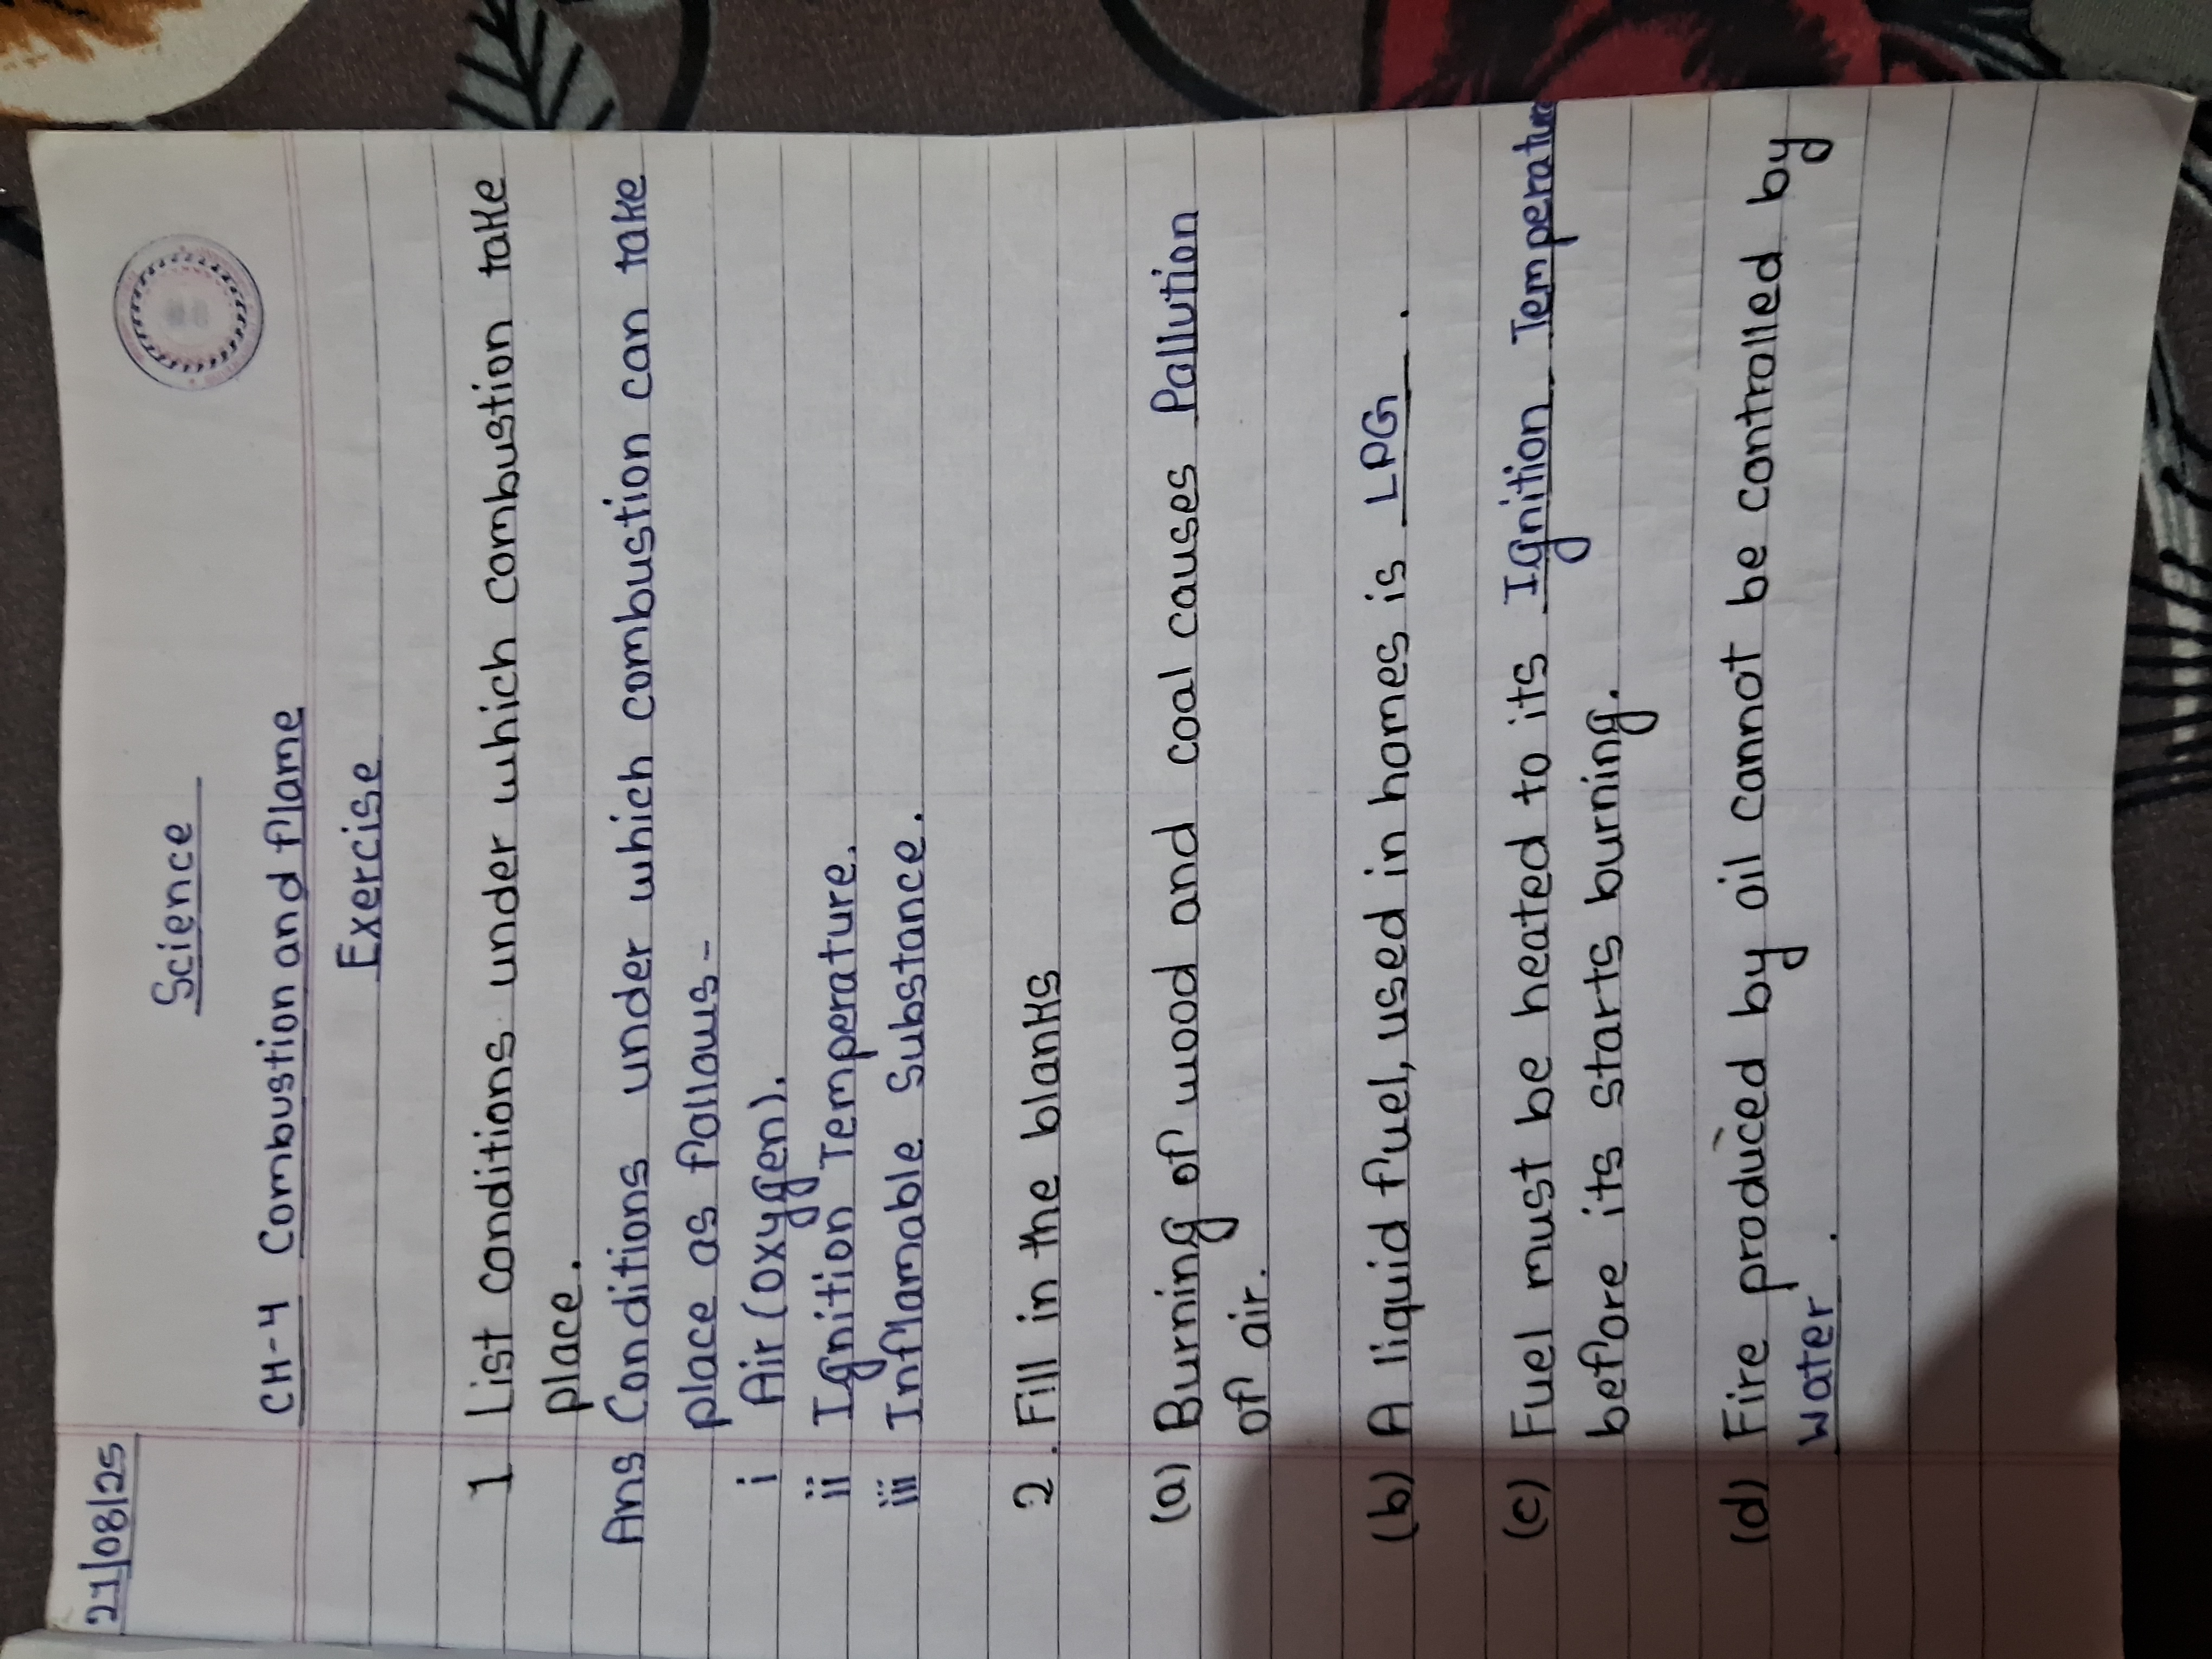 21/08/25
Science
CH-4 Combustion and flame
Exercise
1 List conditions under which combustion take
place.
Ans Conditions under which combustion can take
place as follows-
i Air (oxygen).
ii Ignition Temperature.
iii Inflamable Substance.
2. Fill in the blanks
(a) Burning of wood and coal causes Pallution
of air.
(b) A liquid fuel, used in homes is LPG.
(c) Fuel must be heated to its Ignition Temperature
before its starts burning.
(d) Fire produced by oil cannot be controlled by
water.